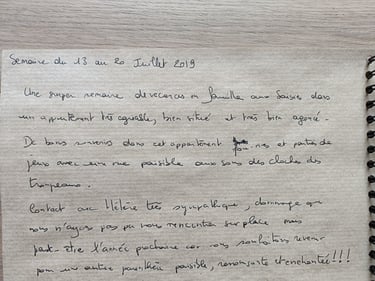 Semaine du 13 au 20 Juillet 2019
Une super semaine de vacances en famille aux Saisies dans
un appartement très agréable, bien situé et très bien agencé.
De bons souvenirs dans cet appartement, fou rires et parties de
jeux avec une vue paisible aux sons des cloches des
troupeaux.
Contact avec Hélène très sympathique, dommage que
nous n'ayons pas pu nous rencontrer sur place mais
peut-être l'année prochaine car nous souhaitons revenir
pour une autre parenthèse paisible, ressourçante et enchantée!!!